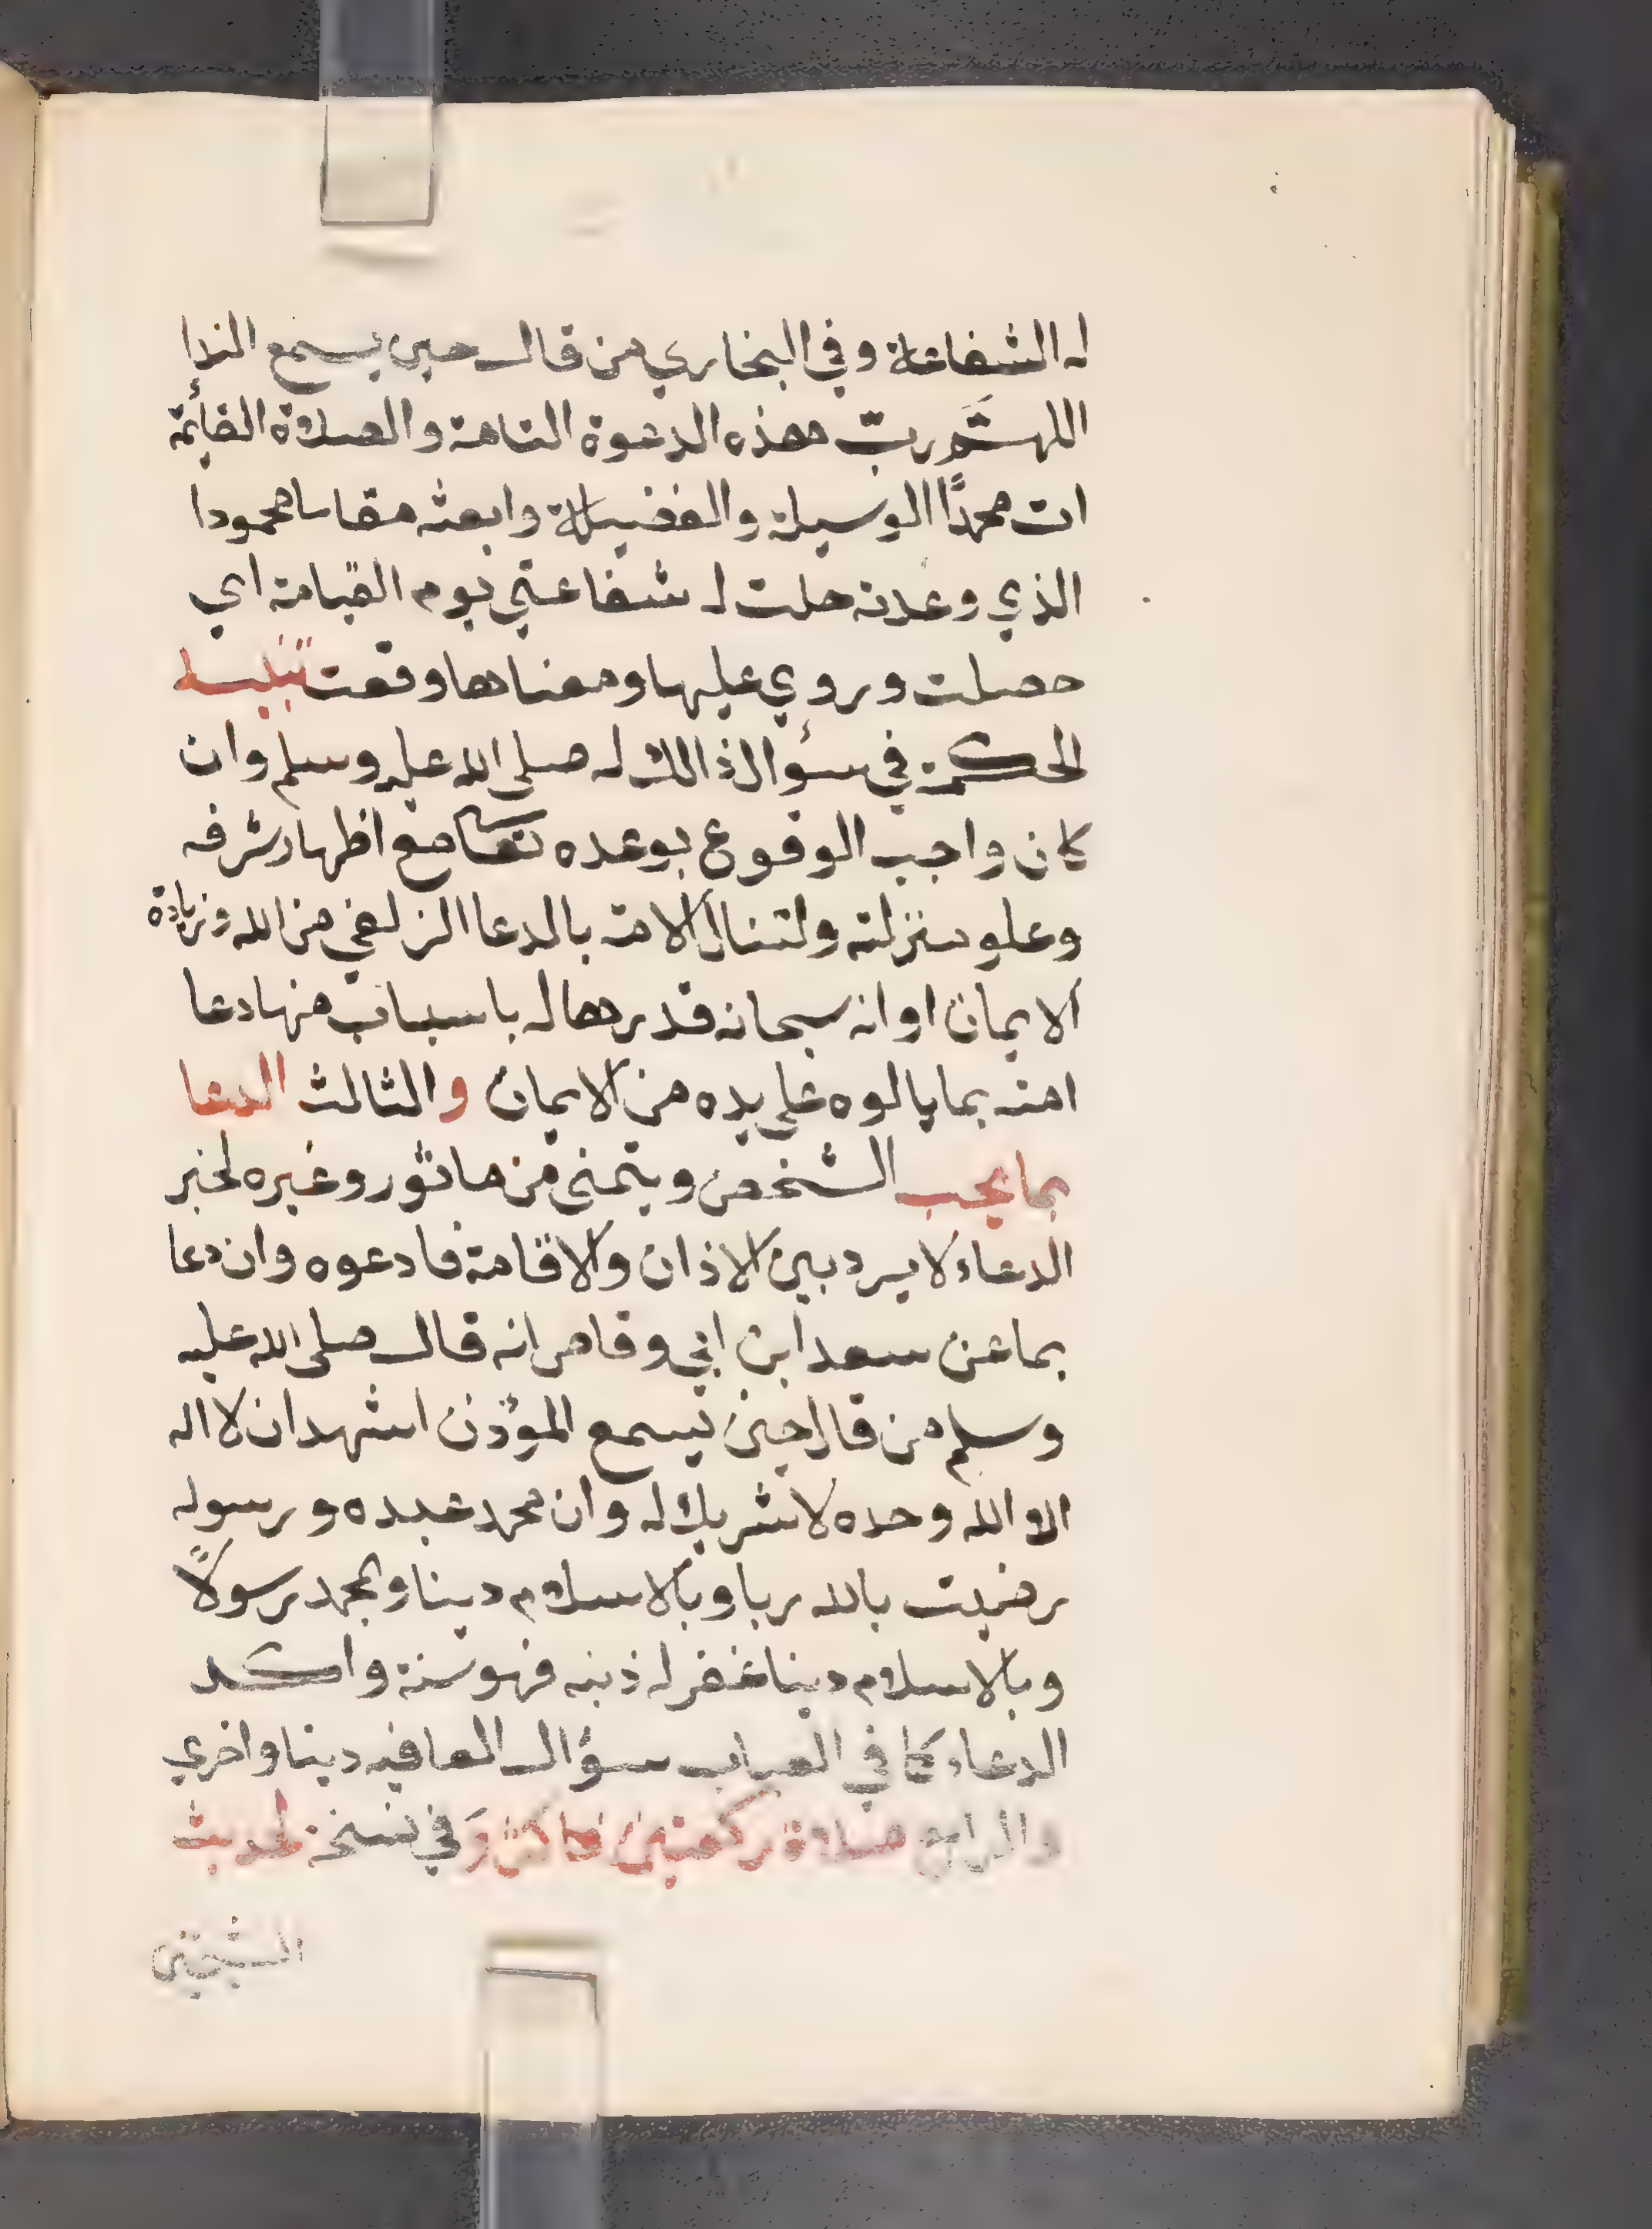 له الشفاعة وفي البخاري من قال حين يسمع الندا
اللهم رب هذه الدعوة التامة والصلاة القائمة
ات محمدًا الوسيلة والفضيلة وابعثه مقاما محمودا
الذي وعدته حلت له شفاعتي يوم القيامة اي
حصلت وروي عليها ومعناها وقعت تنبيه
الحكمة في سؤال ذالك له صلى الله عليه وسلم وان
كان واجب الوقوع بوعده تعا مع اظهار شرفه
وعلو منزلته ولتنال الامة بالدعا الزلفي من الله وزيادة
الايمان او انه سبحانه قدرها له باسباب منها دعا
امته بما يالوه علي يده من الايمان والثالث الدعا
بما يحب الشخص ويتمنى من ماثور وغيره لخبر
الدعاء لا يرد بين الاذان والاقامة فادعوه وان دعا
بما عن سعد ابن ابي وقاص انه قال صلى الله عليه
وسلم من قال حين يسمع المؤذن اشهد ان لا اله
الا الله وحده لا شريك له وان محمد عبده ورسوله
رضيت بالله ربا وبالاسلام دينا وبمحمد رسولًا
وبالاسلام دينا غفر له ذنبه فهو سنة واكد
الدعاء كما في العباب سؤال العافيه دينا واخري
والرابع صلاة ركعتين فاكثر وفي نسخة لحديث
الشيخين